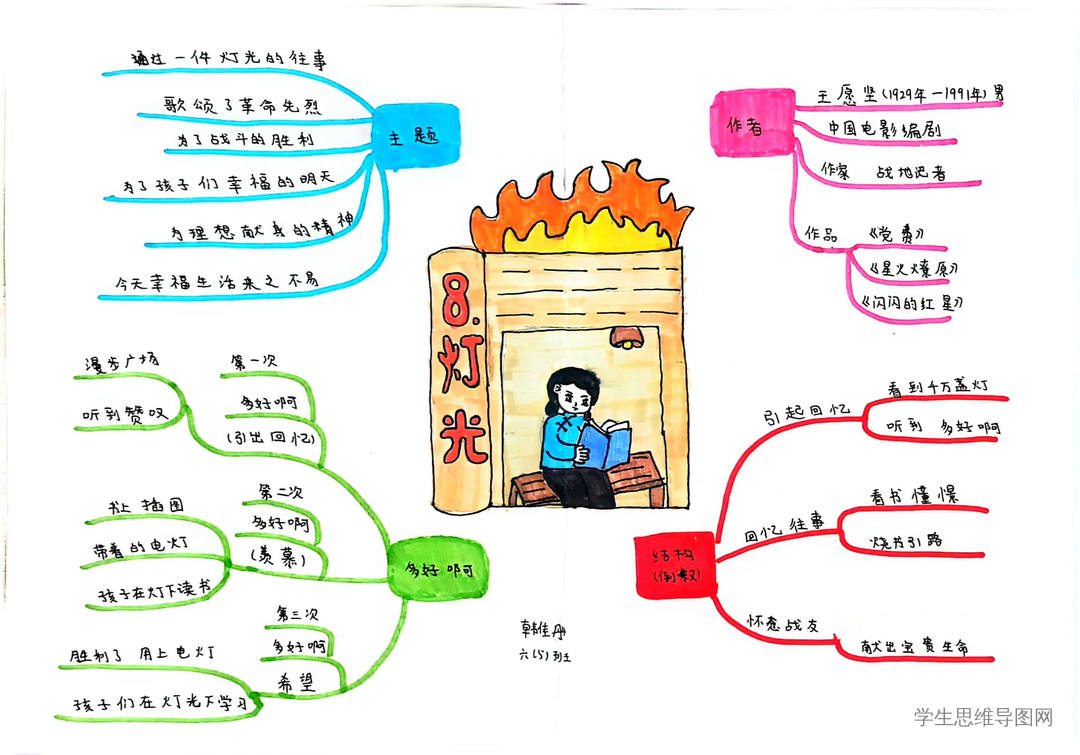 8.灯光
主题
通过一件灯光的往事
歌颂了革命先烈
为了战斗的胜利
为了孩子们幸福的明天
为理想献身的精神
今天幸福生活来之不易
作者
王愿坚(1929年—1991年)男
中国电影编剧
作家 战地记者
作品
《党费》
《星火燎原》
《闪闪的红星》
多好啊可
第一次
多好啊
(引出回忆)
漫步广场
听到赞叹
第二次
多好啊
(羡慕)
书上插图
带着的电灯
孩子在灯下读书
第三次
多好啊
希望
胜利了 用上电灯
孩子们在灯光下学习
结构
(倒叙)
引起回忆
看到千万盏灯
听到 多好啊
回忆往事
看书憧憬
烧书引路
怀念战友
献出宝贵生命
六(5)班
学生思维导图网